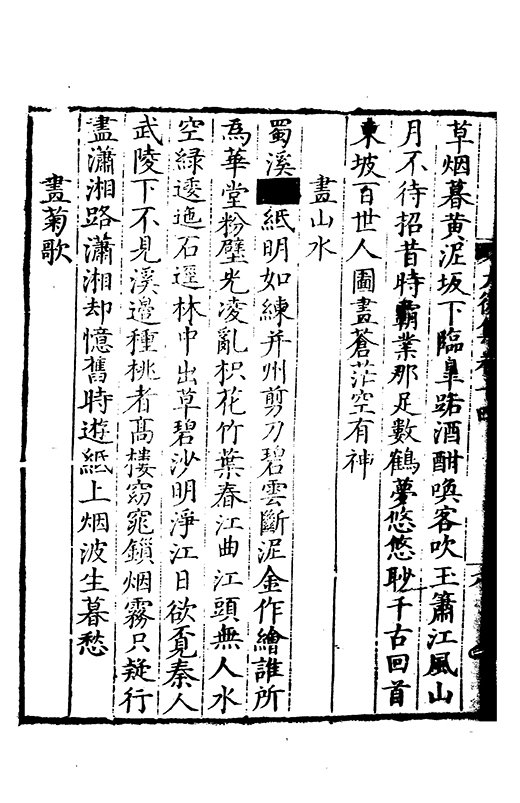 草烟暮黄泥坂下臨皐路酒酣喚客吹玉簫江風山
月不待招昔時霸業那足數鶴夢悠悠眇千古回首
東坡百世人圖畫蒼茫空有神
畫山水
蜀溪紙明如練并州剪刀碧雲斷泥金作繪誰所
爲華堂粉壁光凌亂枳花竹葉春江曲江頭無人水
空綠逶迤石逕林中出草碧沙明淨江日欲覓秦人
武陵下不見溪邊種桃者髙樓窈窕鎖烟霧只疑行
盡瀟湘路瀟湘却憶舊時遊紙上烟波生暮愁
畫菊歌